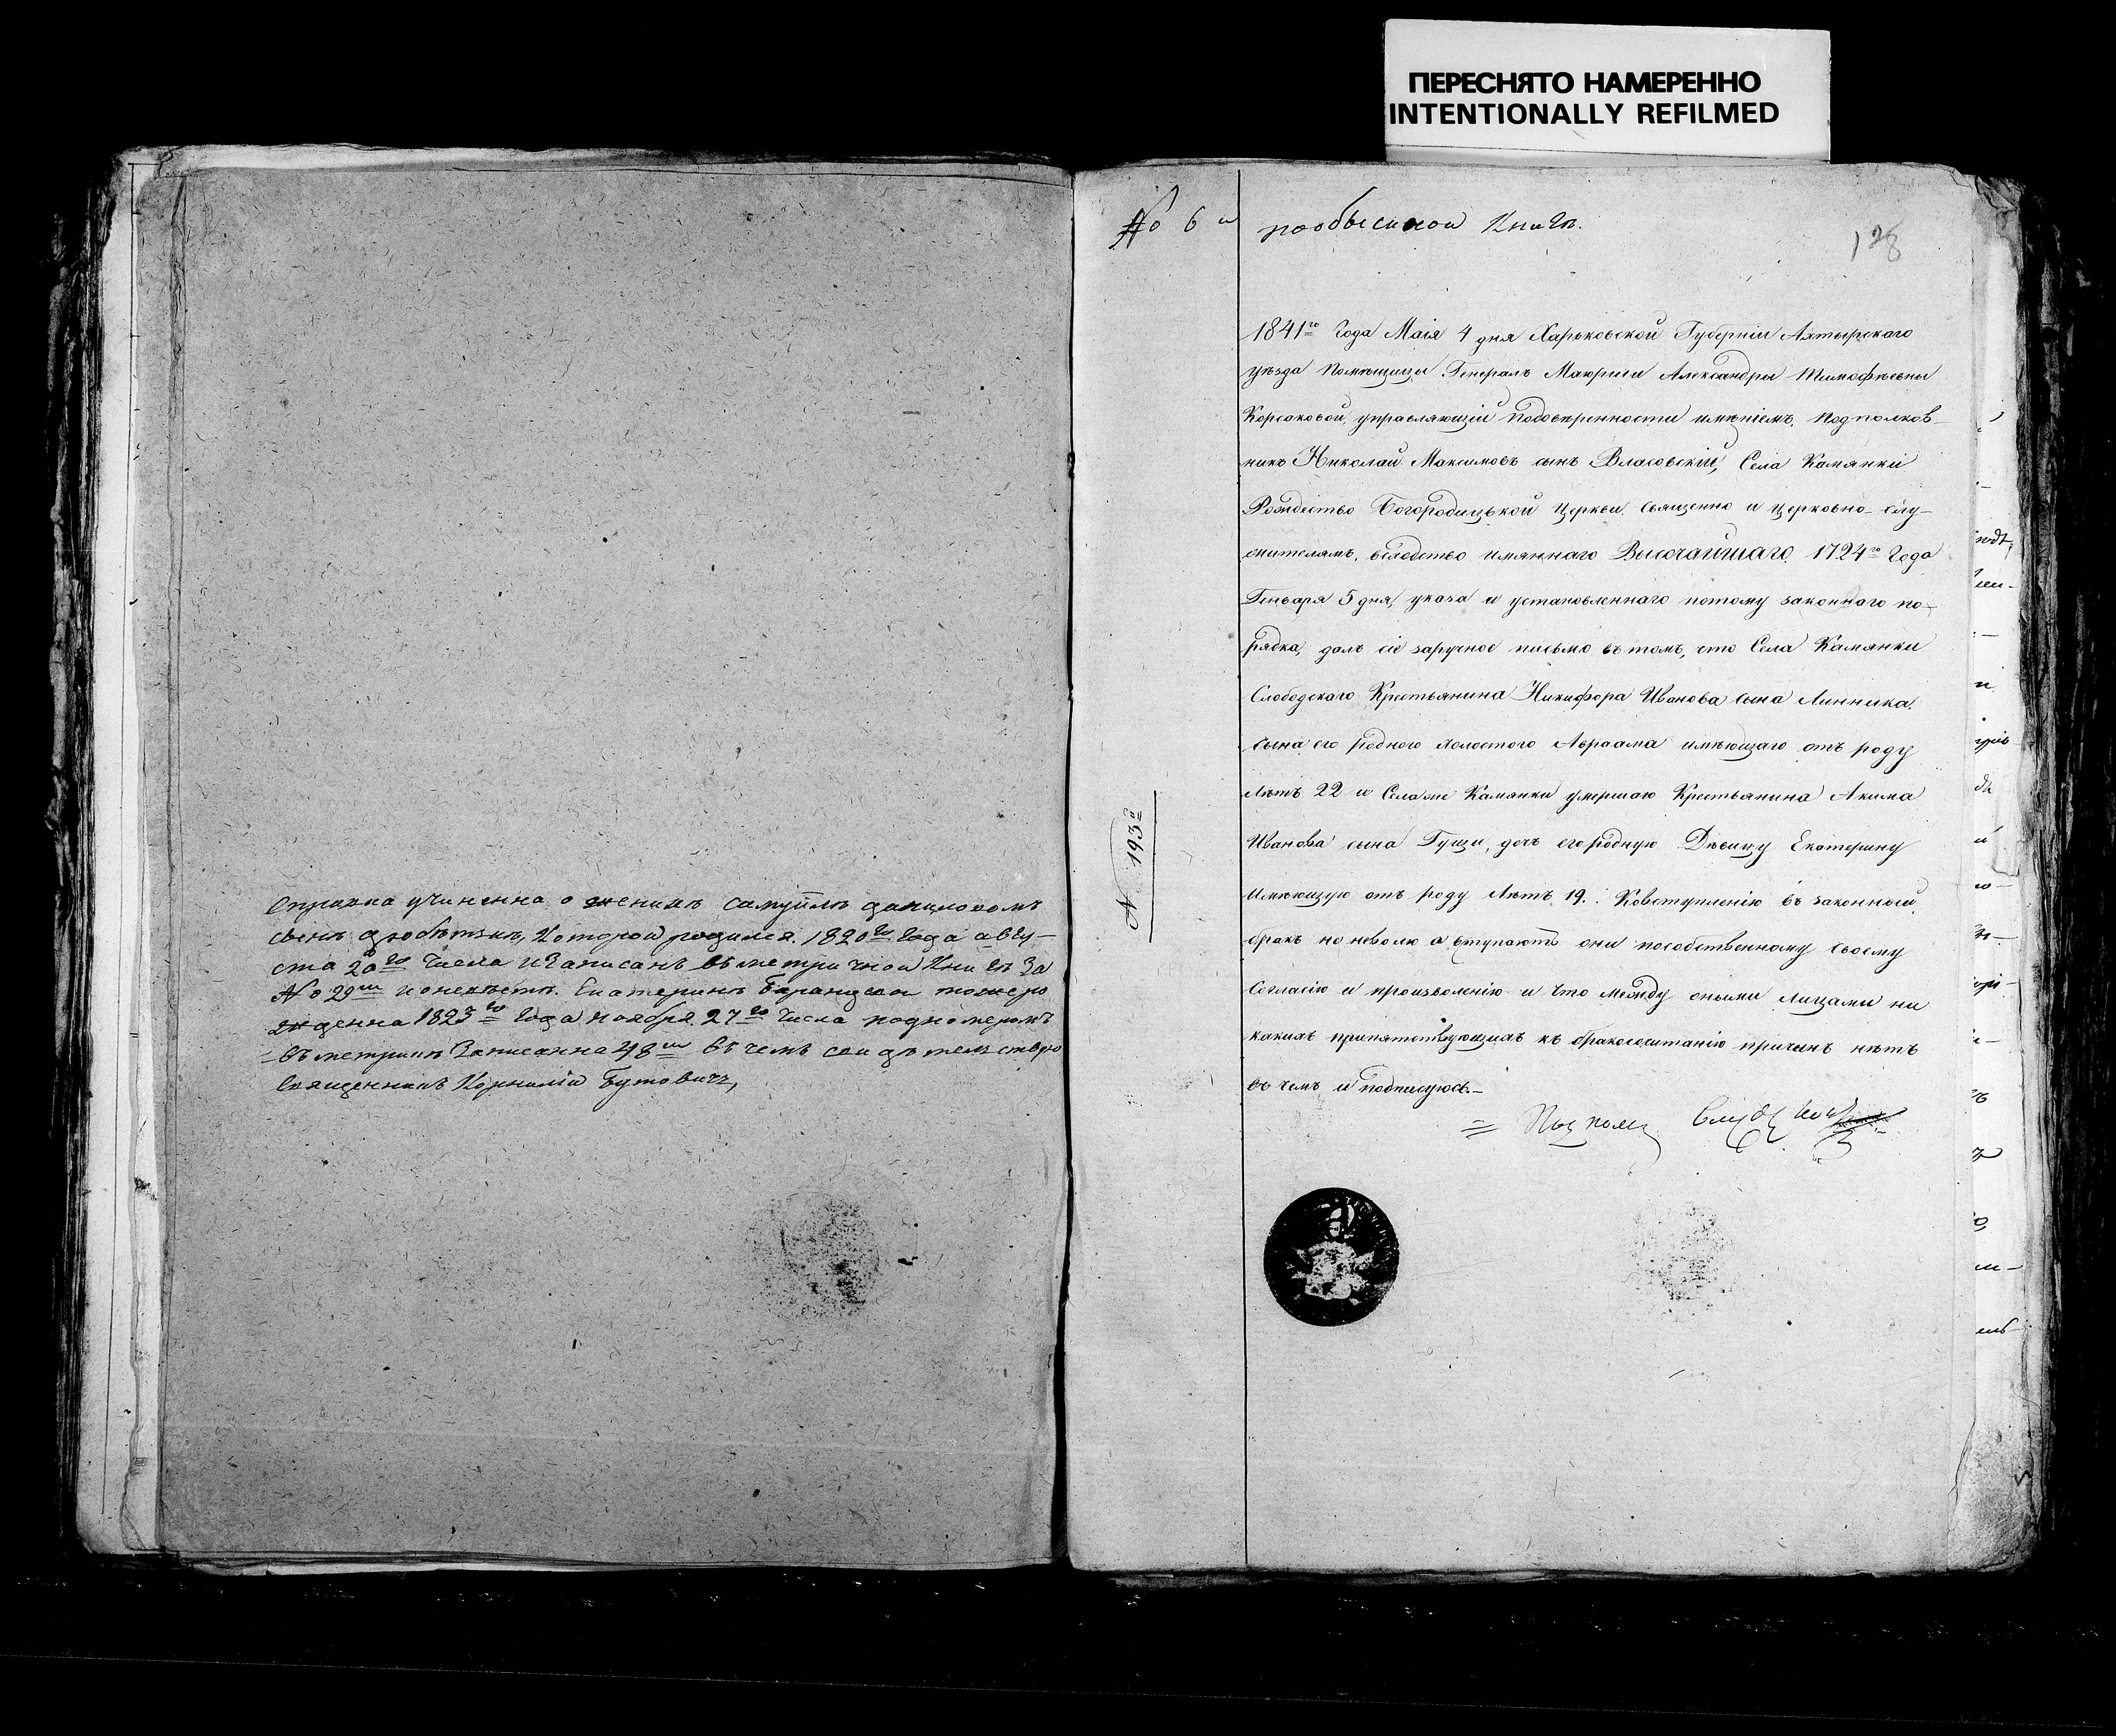 ПЕРЕСНЯТО НАМЕРЕННО
INTENTIONALLY REFILMED
Справка учиненна о женихѣ Самуилѣ Даниловомъ
сынѣ которой родился 1820го Года авгу-
ста 20го числа и Записанъ въ метричной Книгѣ За
№ 29м и о невѣстѣ Екатеринѣ тоже ро
жденна 1823го Года ноября 27го числа подномеромъ
въ метрикѣ Записанна 48м въ чемъ свидѣтельствую
Священникъ Корнилій Бутовичъ,
№ 6й пообыскной Книгѣ.
128
1841го Года Маія 4 дня Харьковской Губерніи Ахтырскаго
уѣзда Помѣщицы Генералъ Маюрши Александры Тимофѣевны
Корсаковой, управляющій Подовѣренности имѣніемъ, Подполков-
никъ Николай Максимовъ сынъ Власовскій, Села Камянки
Рождество Богородицькой Церкви, священно и церковно-слу-
жителямъ, вслѣдство имяннаго Высочайшаго 1724го Года
Генваря 5 дня, указа и установленнаго потому законнаго по-
рядка, далъ сіе заручное письмо въ томъ, что Села Камянки
Слободскаго Крестьянина Никифора Иванова сына Линника
сына его родного холостого Авраама имѣющаго отъ роду
Лѣтъ 22 и Села же Камянки умершаго Крестьянина Акима
Иванова сына Гущи, дочь его родную Дѣвицу Екатерину
Имѣющую отъ роду Лѣтъ 19. Ковступленію въ законный
бракъ но неволю а вступаютъ они пособственному своему
Согласію и произволенію и что между оными лицами ни
какихъ припятствующихъ къ бракосочитанію причинъ нѣтъ
въ чемъ и подписуюсь.-
№ 193й